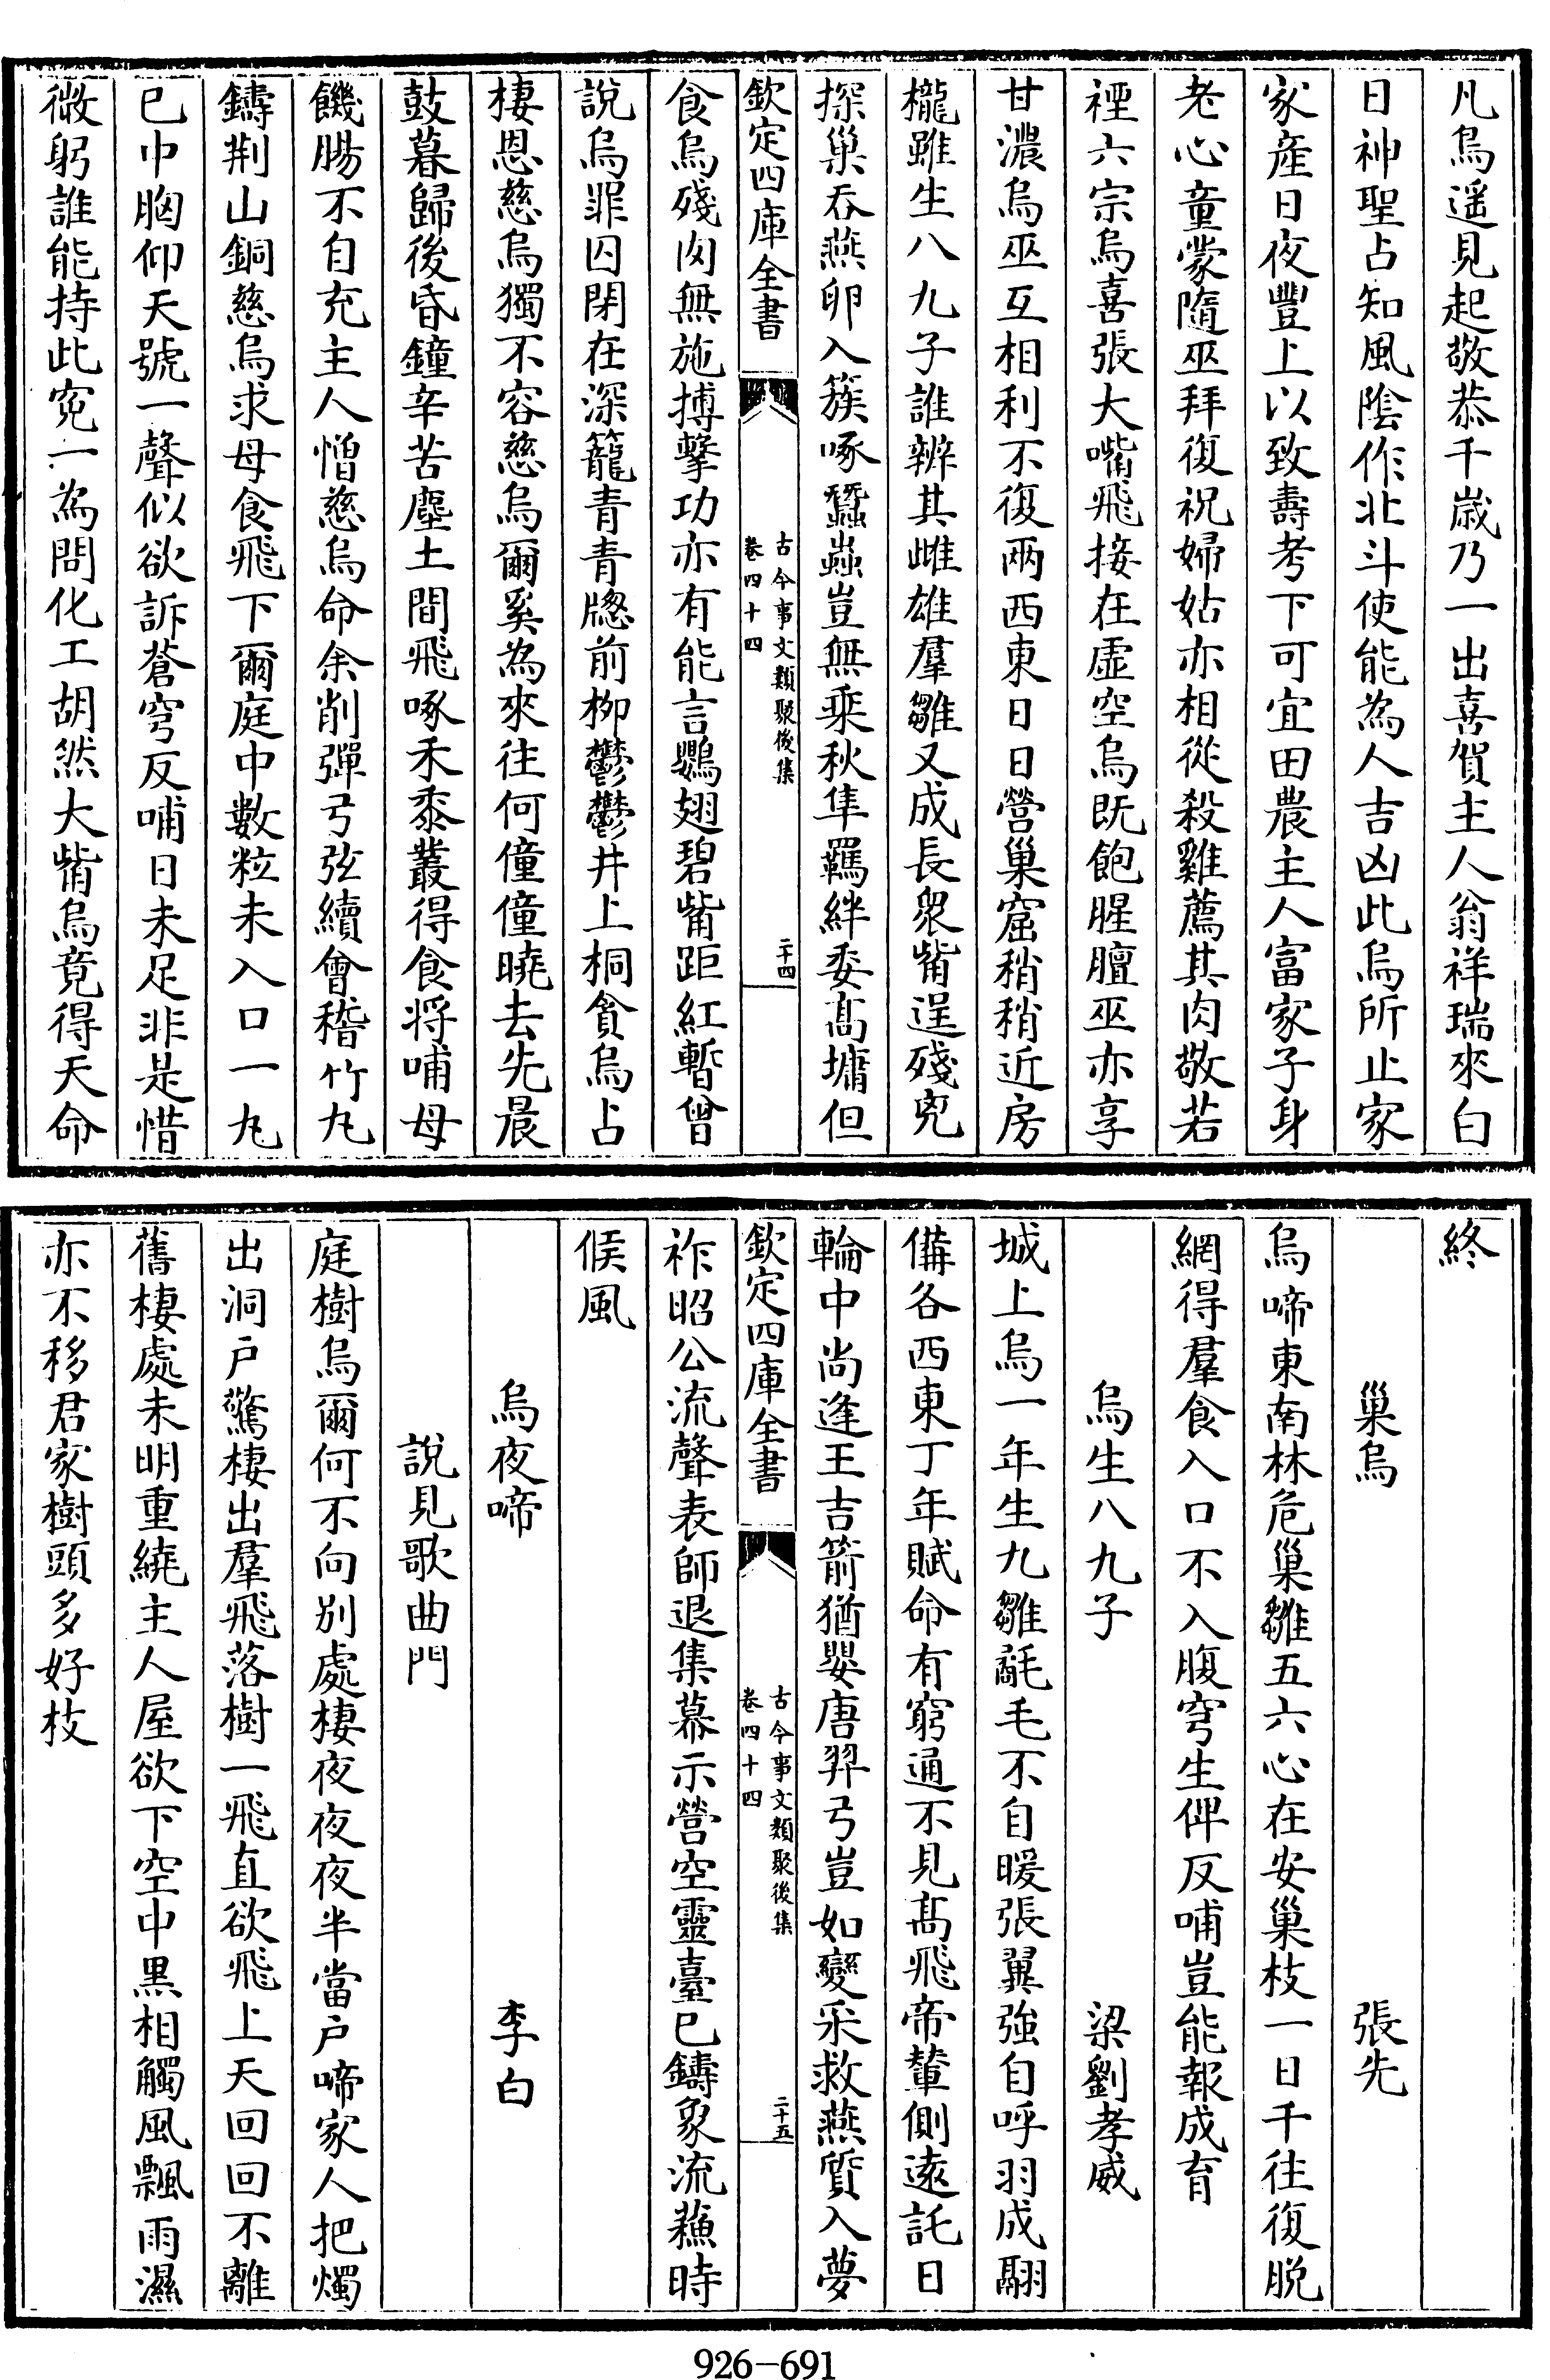 凡鳥遥見起敬恭千歳乃一出喜賀主人翁祥瑞來白
日神聖占知風隂作北斗使能為人吉凶此烏所止家
家産日夜豐上以致壽考下可宜田農主人富家子身
老心童蒙隨巫拜復祝婦姑亦相從殺雞薦其肉敬若
禋六宗烏喜張大嘴飛接在虛空烏既飽腥膻巫亦享
甘濃烏巫互相利不復兩西東日日營巢窟稍稍近房
櫳雖生八九子誰辨其雌雄羣雛又成長衆觜逞殘兇
探巢吞燕卵入簇啄蠶蟲豈無乘秋隼羈絆委髙墉但
欽定四庫全書
古今事文類聚後集
卷四十四
二十四
食烏殘肉無施搏擊功亦有能言鸚翅碧觜距紅暫曾
說烏罪囚閉在深籠青青牕前栁鬱鬱井上桐貪烏占
棲恩慈烏獨不容慈烏爾奚為來往何憧憧曉去先晨
鼓暮歸後昏鐘辛苦塵土間飛啄禾黍叢得食将哺母
饑腸不自充主人憎慈烏命余削彈弓弦續會稽竹丸
鑄荆山銅慈烏求母食飛下爾庭中數粒未入口一丸
已中胸仰天號一聲似欲訴蒼穹反哺日未足非是惜
微躬誰能持此寃一為問化工胡然大觜烏竟得天命
終
巢烏 張先
烏啼東南林危巢雛五六心在安巢枝一日千往復脱
網得羣食入口不入腹穹生俾反哺豈能報成育
烏生八九子 梁劉孝威
城上烏一年生九雛毻毛不自暖張翼強自呼羽成翮
備各西東丁年賦命有窮通不見髙飛帝輦側遠託日
輪中尚逢王吉箭猶嬰唐羿弓豈如變采救燕質入夢
欽定四庫全書
古今事文類聚後集
卷四十四
二十五
祚昭公流聲表師退集幕示營空靈臺已鑄象流蘓時
候風
烏夜啼 李白
說見歌曲門
庭樹烏爾何不向别處棲夜夜夜半當户啼家人把燭
出洞户驚棲出羣飛落樹一飛直欲飛上天回回不離
舊棲處未明重繞主人屋欲下空中黒相觸風飄雨濕
亦不移君家樹頭多好枝
926-691